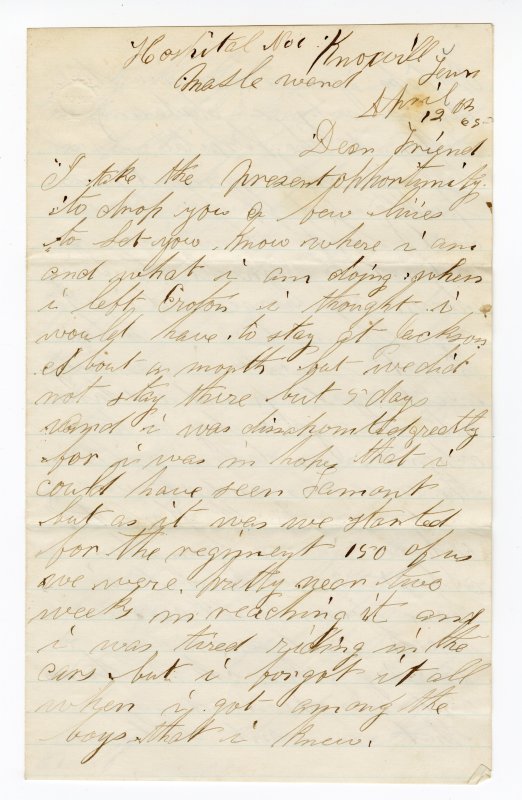 Hospital No 1 Knoxvill Tenn
ward
April 12th 65
Dear Friend
I take the present opportunity
to drop you a few lines
to let you know where i am
and what i am doing when
i left Croton i thought i
would have to stay at Jackson
About a month but we did
not stay there but 5 days
and i was greatly
for i was in hopes that i
could have seen Lamont
but as it was we started
for the regiment 150 of us
we were pretty near two
weeks in reaching it and
i was tired riding in the
cars but i forgot it all
when i got among the
boys that i knew.